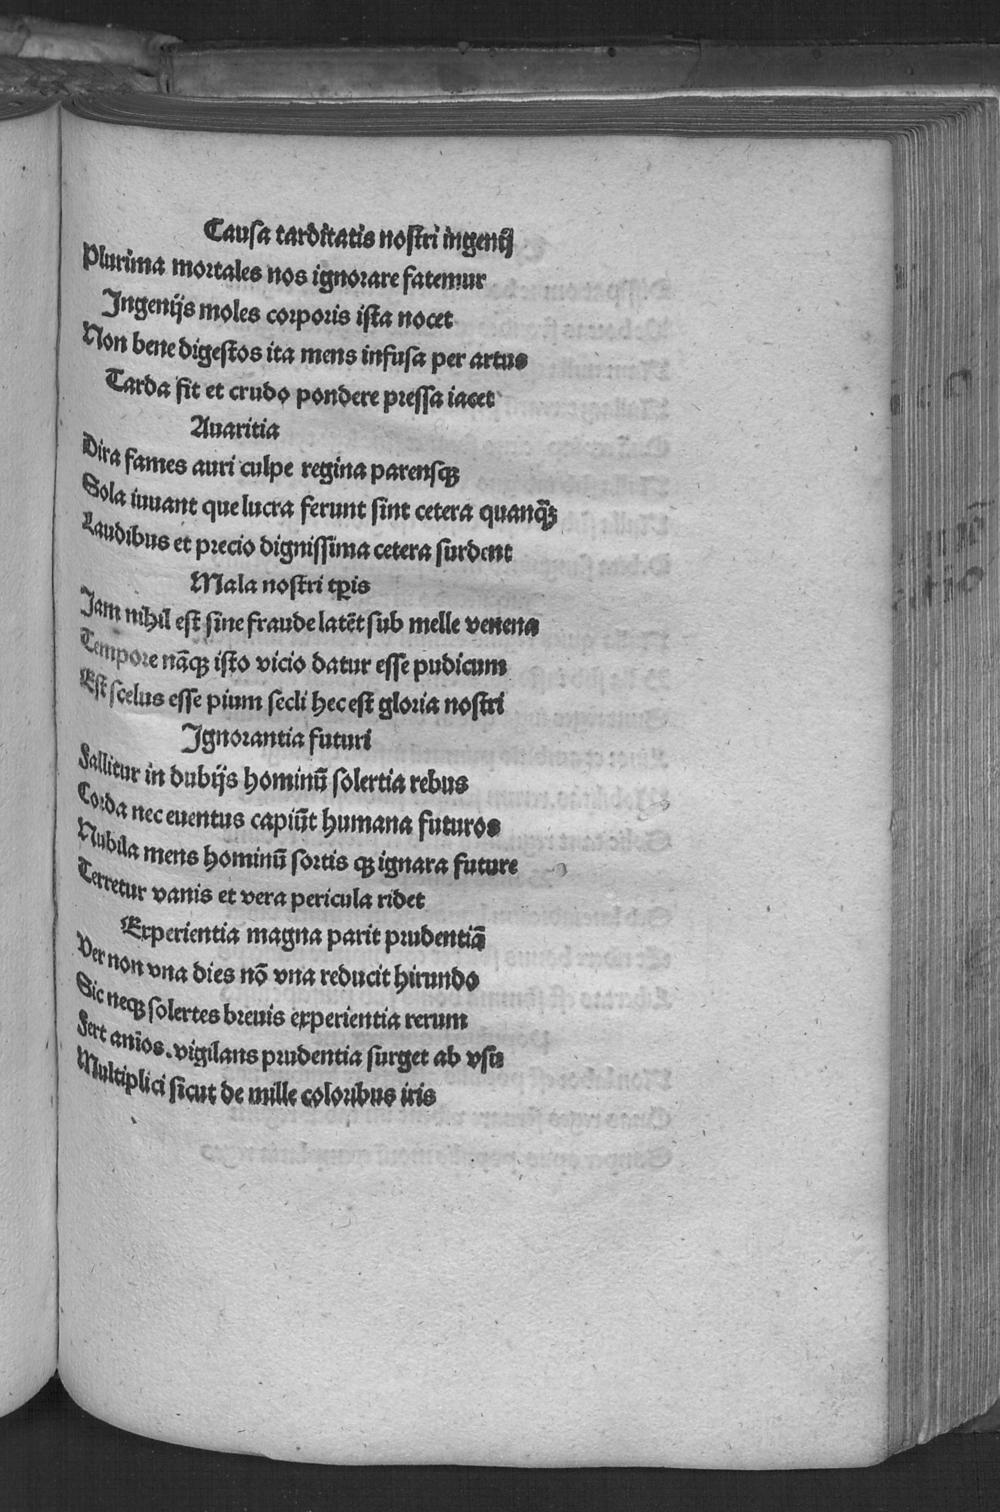 Causa tarditatis nostri ingenij
Plurima mortales nos ignorare fatemur
Ingenijs moles corporis ista nocet
Non bene digestos ita mens infusa per artus
Tarda fit et crudo pondere pressa iacet
Auaritia
Dira fames auri culpe regina parensqꝫ
Sola iuuant que lucra ferunt sint cetera quanqᷓꝫ
Laudibus et precio dignissima cetera surdent
Mala nostri tꝑis
Jam nihil est sine fraude latēt sub melle venena
Tempore nāqꝫ isto vicio datur esse pudicum
Est scelus esse pium secli hec est gloria nostri
Ignorantia futuri
Fallitur in dubijs hominū solertia rebus
Corda nec euentus capiūt humana futuros
Nubila mens hominū sortis qꝫ ignara future
Terretur vanis et vera pericula ridet
Experientia magna parit prudentiā
Ver non vna dies nō vna reducit hirundo
Sic neqꝫ solertes breuis experientia rerum
Fert anīos. vigilans prudentia surget ab vsu
Multiplici sicut de mille coloribus iris